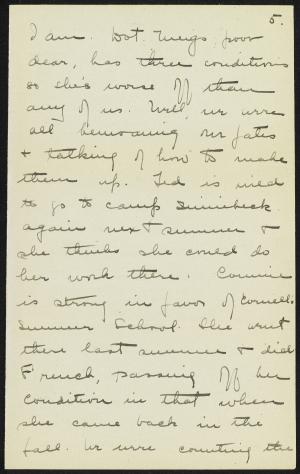 5.
I am. Dot Meigs, poor
dear, has three conditions
so she's worse off than
any of us. Well, we were
all bemoaning our fates
& talking of how to make
them up. Ted is wild
to go to camp
again next summer &
she thinks she could do
her work there. Connie
is strong in favor of Cornell
Summer School. She went
there last summer & did
French, passing off her
condition in that when
she came back in the
fall. We were counting the